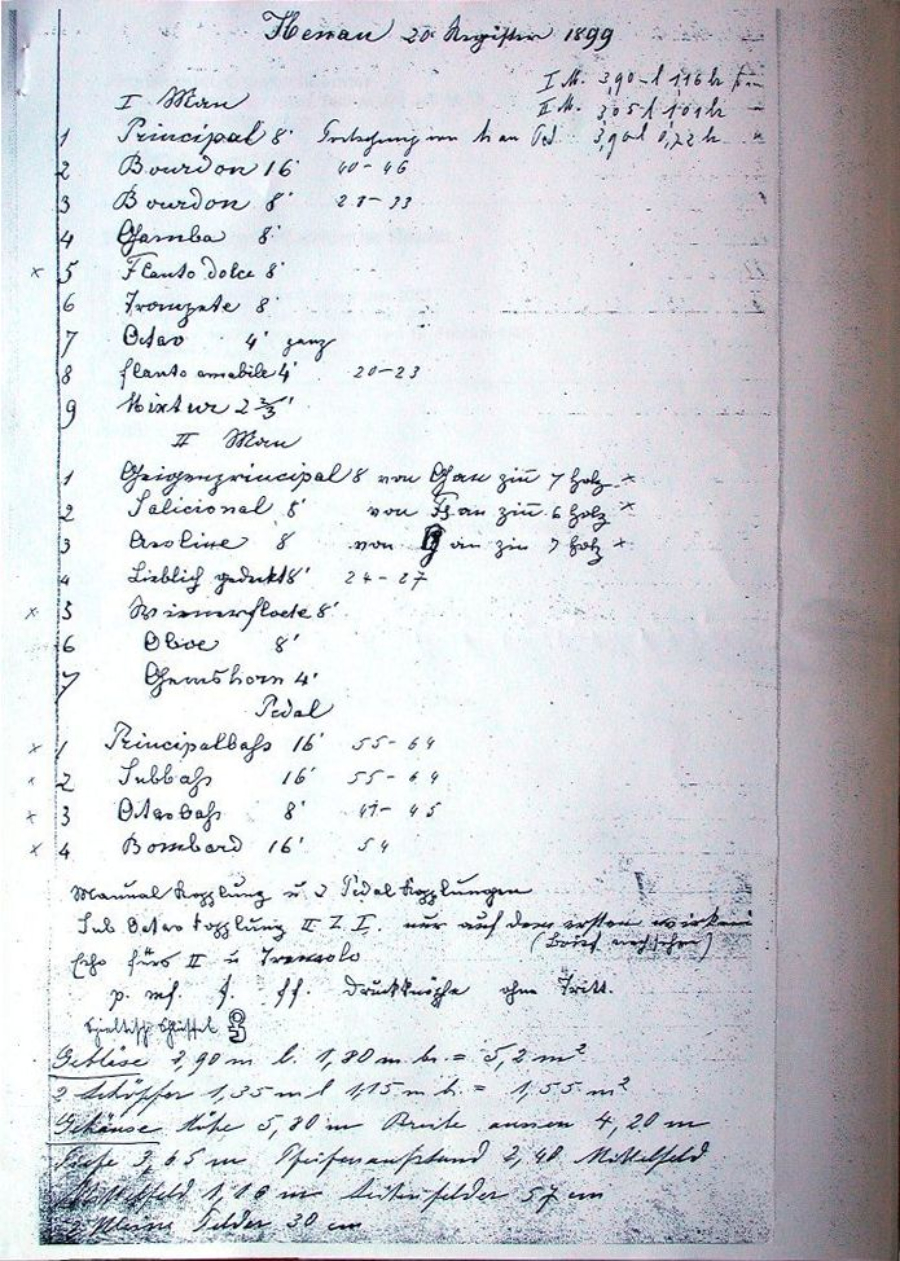 Henau 20 Register 1899
I M. 3,90 l 1,16 br
II M. 3,05 l 1,01 br
I Man
1 Principal 8' von h an Ped 3,90 l 0,72 br
2 Bourdon 16' 40-46
3 Bourdon 8' 28-33
4 Gamba 8'
x 5 Flauto dolce 8'
6 Trompete 8'
7 Octav 4' ganz
8 flauto amabile 4' 20-23
9 Mixtur 2 2/3'
II Man
1 Geigenprincipal 8 von G an zin̄ 7 Holz x
2 Salicional 8' von Fs an zin̄ 6 Holz x
3 Aeoline 8 von G an zin 7 Holz x
4 Lieblich gedekt 8' 24-27
x 5 Wienerfloete 8'
6 Oboe 8'
7 Gemshorn 4'
Pedal
x 1 Principalbass 16' 55-64
x 2 Subbass 16' 55-64
x 3 Octavbass 8' 41-45
x 4 Bombard 16' 54
Manual Kopplung u. 2 Pedal Kopplungen
Sub Octav Kopplung II z I. nur auf dem ersten wirkend
(Brief nachsehen)
Echo fürs II u Tremolo
p. mf. f. ff. Druckknöpfe ohne Tritt.
Spieltisch Schlüssel
Gebläse 2,90 m l. 1,80 m br. = 5,2 m²
2 Schöpfer 1,35 m l 1,15 m b. = 1,55 m²
Gehäuse Höhe 5,80 m Breite aussen 4,20 m
Tiefe 3,65 m Pfeifenaufstand 2,40 Mittelfeld
Mittelfeld 1,16 m Seitenfelder 57 cm
2 kleine Felder 30 cm